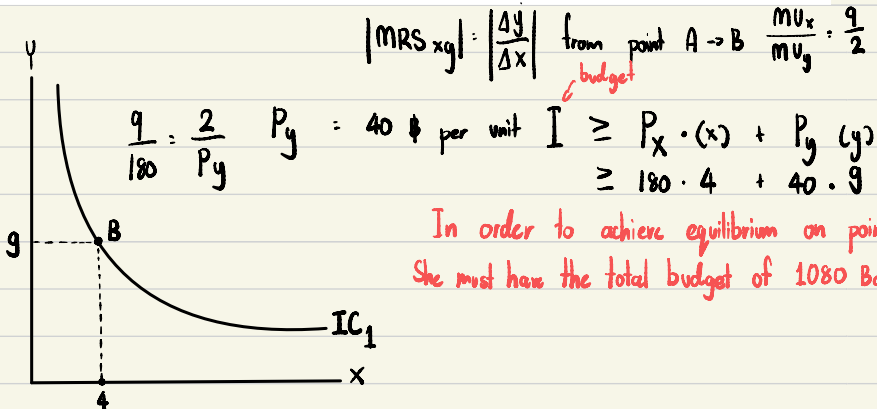 |MRS xy| = |Δy/Δx| from point A → B MUx/MUy = 9/2
budget
Y
9/180 = 2/Py Py = 40 ฿ per unit I ≥ Px · (x) + Py (y)
≥ 180 · 4 + 40 · 9
In order to achieve equilibrium on poin
9 B
She must have the total budget of 1080 Ba
IC1
X
4